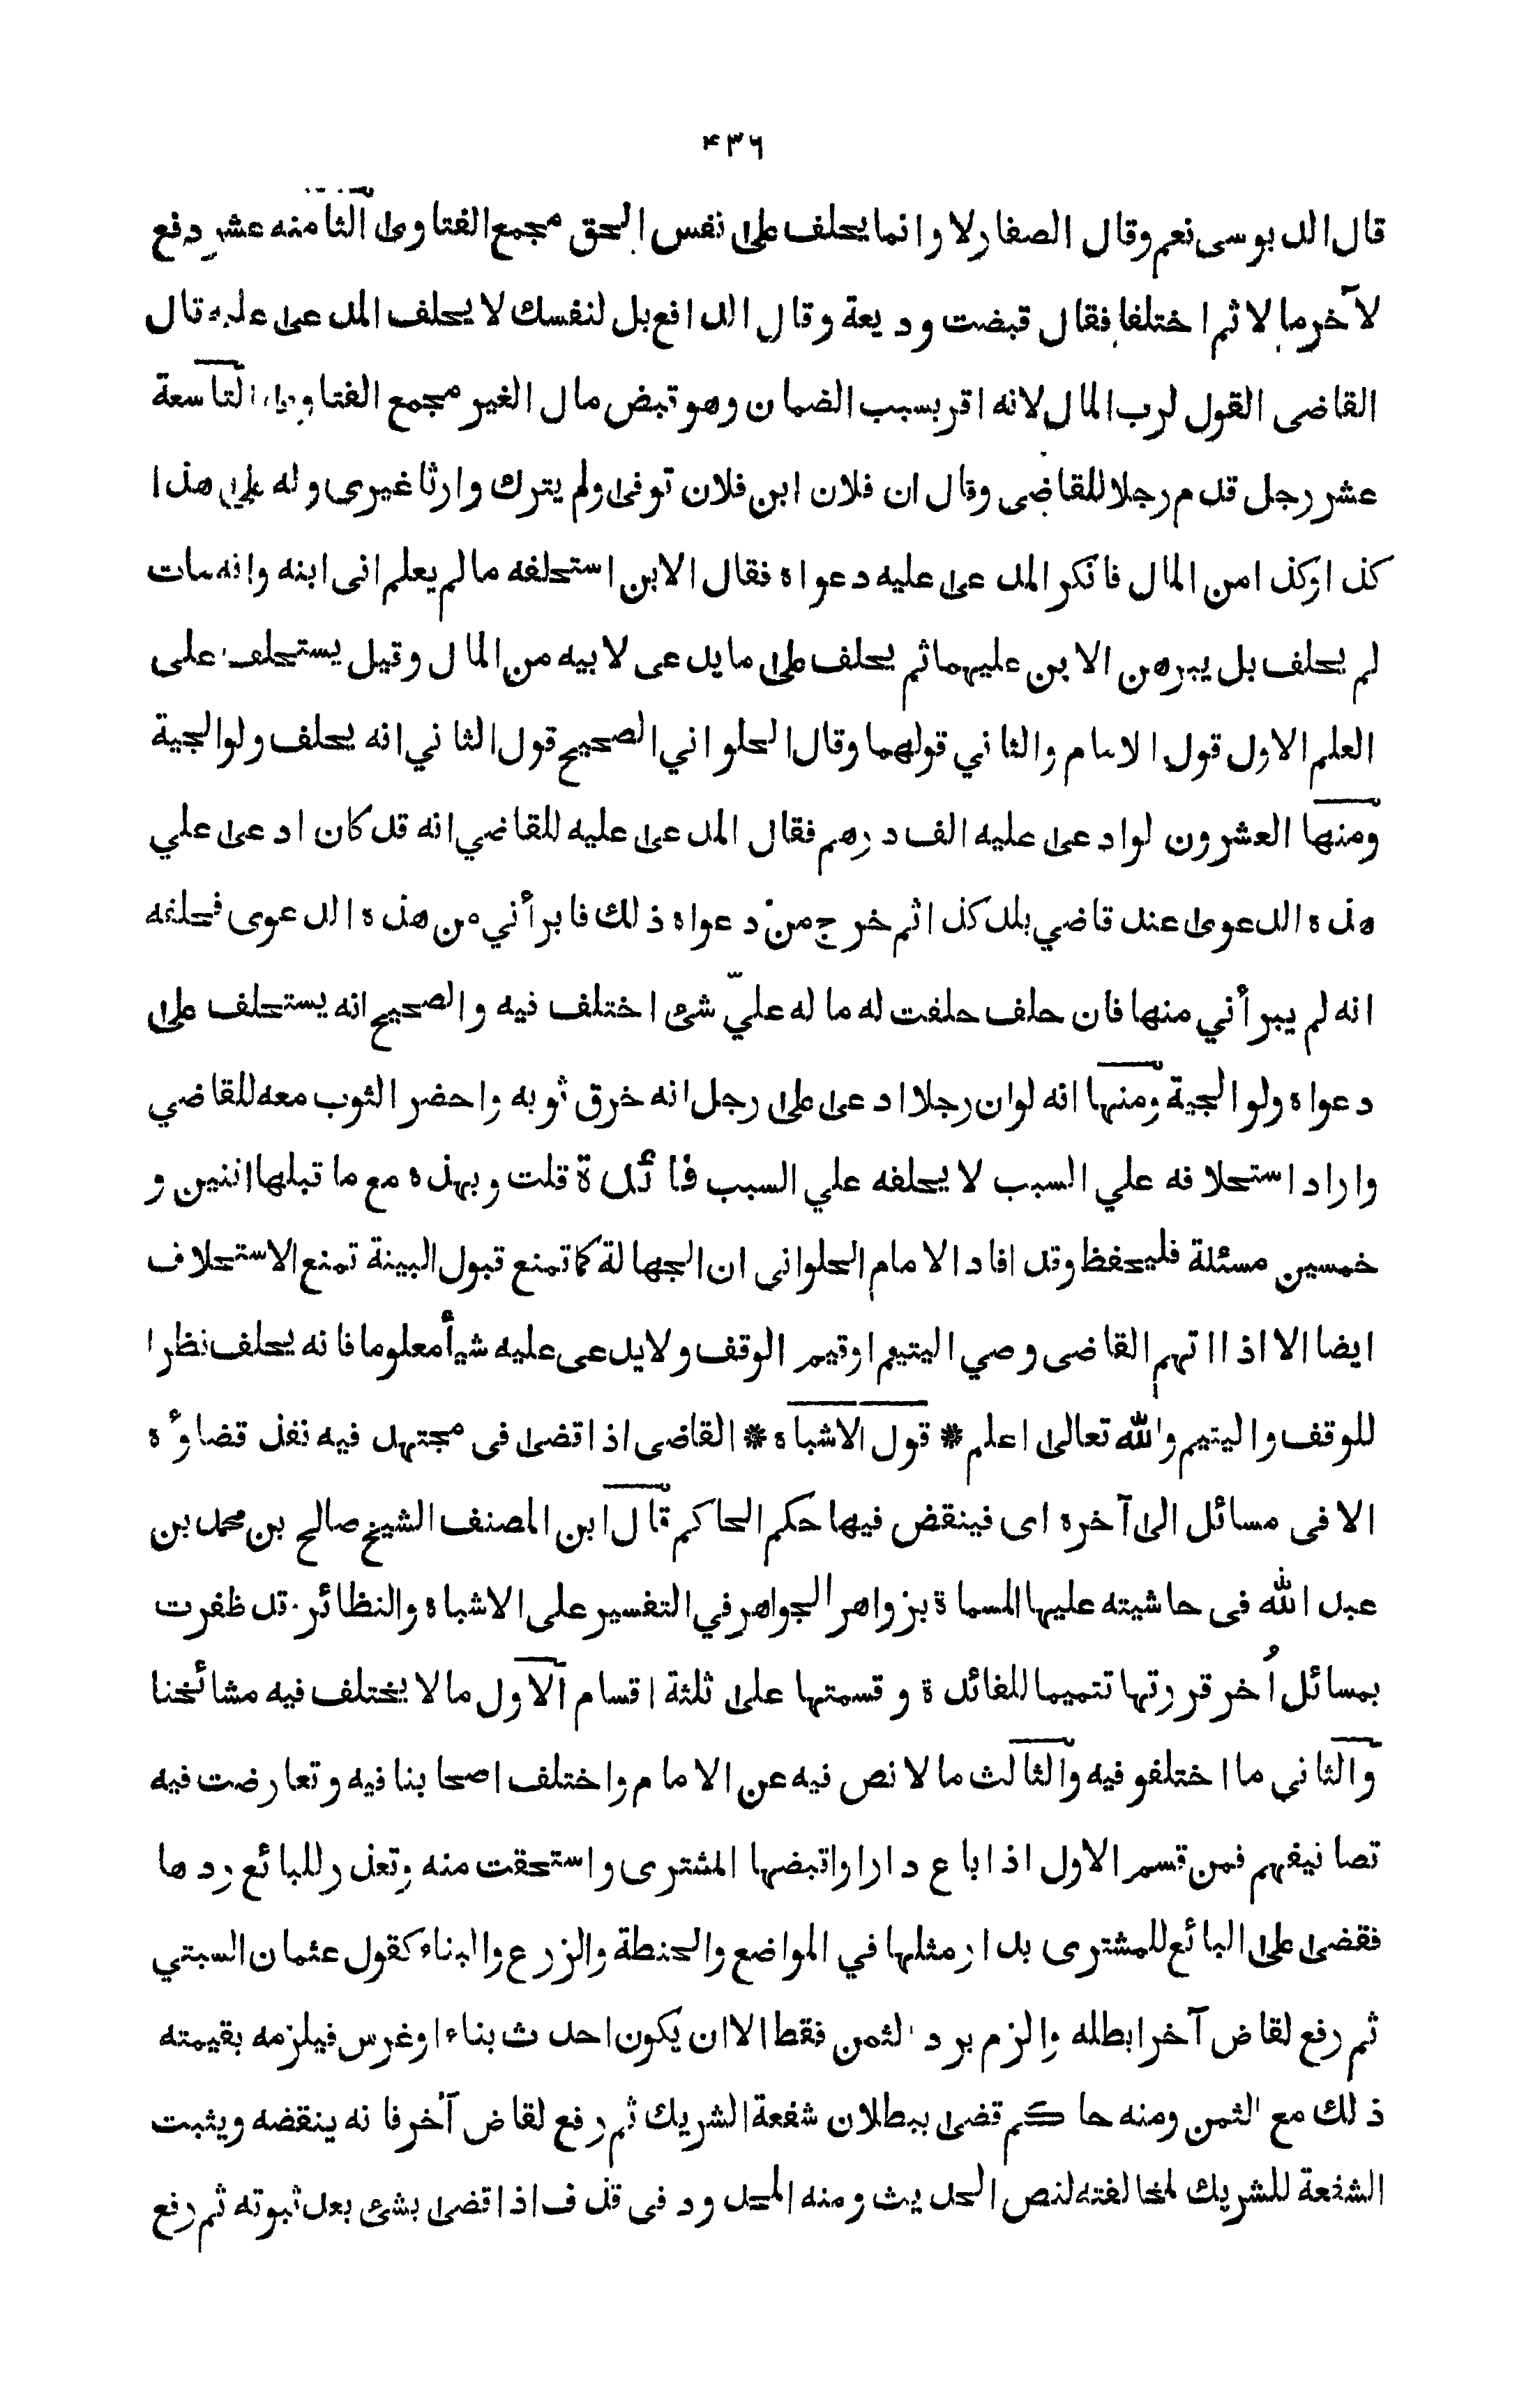 ۴۳۶
قال الدبوسى نعم وقال الصفار لا وانما يحلف على نفس الحق مجمع الفتاوى الثامنه عشر دفع
لآخر مالا ثم اختلفا فقال قبضت وديعة وقال الدافع بل لنفسك لا يحلف المدعى عليه قال
القاضى القول لرب المال لانه اقر بسبب الضمان وهو قبض مال الغير مجمع الفتاوى التاسعة
عشر رجل قدم رجلا للقاضى وقال ان فلان ابن فلان توفى ولم يترك وارثا غيرى وله على هذا
كذا وكذا من المال فانكر المدعى عليه دعواه فقال الابن استحلفه ما لم يعلم انى ابنه وانه مات
لم يحلف بل يبرهن الابن عليهما ثم يحلف على ما يدعى لابيه من المال وقيل يستحلف على
العلم الاول قول الامام والثاني قولهما وقال الحلواني الصحيح قول الثاني انه يحلف ولوالجية
ومنها العشرون لو ادعى عليه الف درهم فقال المدعى عليه للقاضي انه قد كان ادعى علي
هذه الدعوى عند قاضي بلد كذا ثم خرج من دعواه ذلك فابرأني من هذه الدعوى فحلفه
انه لم يبرأني منها فان حلف حلفت له ما له عليّ شئ اختلف فيه والصحيح انه يستحلف على
دعواه ولوالجية ومنها انه لو ان رجلا ادعى على رجل انه خرق ثوبه واحضر الثوب معه للقاضي
واراد استحلافه علي السبب لا يحلفه علي السبب فائدة قلت وبهذه مع ما قبلها اننين و
خمسين مسئلة فليحفظ وقد افاد الامام الحلوانى ان الجهالة كما تمنع قبول البينة تمنع الاستحلاف
ايضا الا اذا اتهم القاضى وصي اليتيم او قيم الوقف ولا يدعى عليه شيأ معلوما فانه يحلف نظرا
للوقف واليتيم والله تعالى اعلم * قول الاشباه * القاضى اذا قضى فى مجتهد فيه نفذ قضاؤه
الا فى مسائل الى آخره اى فينقض فيها حكم الحاكم قال ابن المصنف الشيخ صالح بن محمد بن
عبد الله فى حاشيته عليها المسماة بزواهر الجواهر في التفسير على الاشباه والنظائر. قد ظفرت
بمسائل اُخر قررتها تتميما للفائدة وقسمتها على ثلثة اقسام الآول ما لا يختلف فيه مشائخنا
والثانى ما اختلفو فيه والثالث ما لا نص فيه عن الامام واختلف اصحابنا فيه وتعارضت فيه
تصانيفهم فمن قسم الاول اذا باع دارا واقبضها المشترى واستحقت منه وتعذر للبائع ردها
فقضى على البائع للمشترى بدار مثلها في المواضع والحنطة والزرع والبناء كقول عثمان السبتي
ثم رفع لقاض آخر ابطله والزم برد الثمن فقط الا ان يكون احدث بناء او غرس فيلزمه بقيمته
ذلك مع الثمن ومنه حاكم قضى ببطلان شفعة الشريك ثم رفع لقاض آخر فانه ينقضه ويثبت
الشفعة للشريك لمخالفته لنص الحديث ومنه المحدود فى قذف اذا قضى بشئ بعد ثبوته ثم رفع